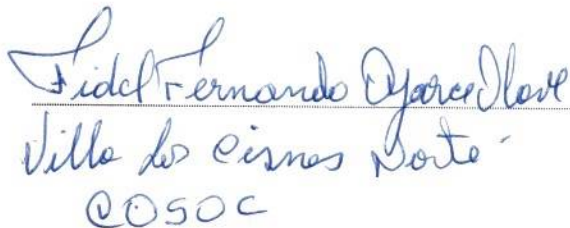 Fidel Fernando Oyarce Olave
Villa los Cisnes Norte
COSOC